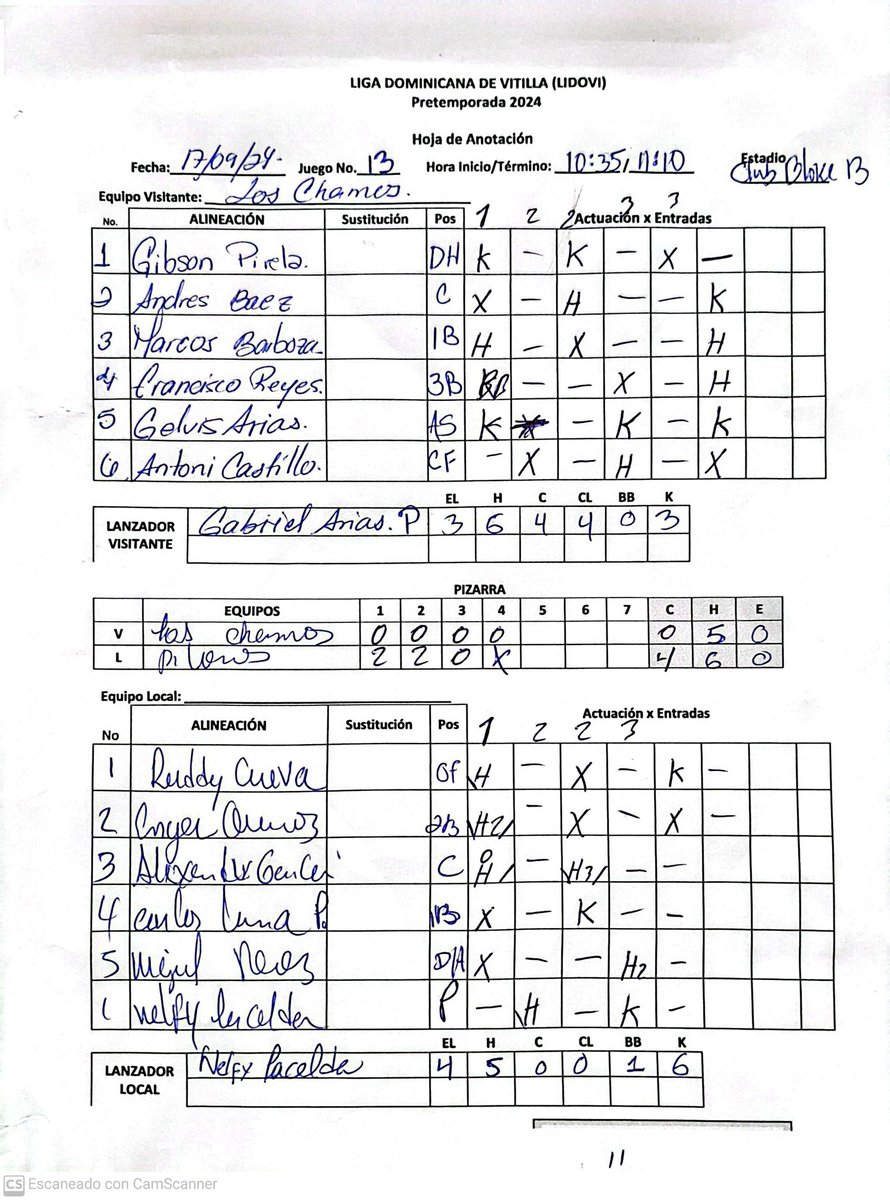 LIGA DOMINICANA DE VITILLA (LIDOVI)
Pretemporada 2024
Hoja de Anotación
Fecha: 17/09/24- Juego No. 13 Hora Inicio/Término: 10:35/11:10 Estadio Club Bloke B
Equipo Visitante: Los Chamos.
1 2 2 3 3
No. ALINEACIÓN Sustitución Pos Actuación x Entradas
1 Gibson Pirela. DH K – K – X –
2 Andres Baez C X – H – – K
3 Marcos Barboza. 1B H – X – – H
4 Francisco Reyes. 3B – – X – H
5 Gelvis Arias. AS K – K – K
6 Antoni Castillo. CF – X – H – X
EL H C CL BB K
LANZADOR VISITANTE Gabriel Arias. P 3 6 4 4 0 3
PIZARRA
EQUIPOS 1 2 3 4 5 6 7 C H E
V Los chamos 0 0 0 0 0 5 0
L 2 2 0 X 4 6 0
Equipo Local:
No ALINEACIÓN Sustitución Pos Actuación x Entradas
1 2 2 3
1 Ruddy Cueva H – X – K –
2 2B H2/ – X – X –
3 C H/ – H3/ – –
4 Carlos Luna P. 1B X – K – –
5 X – – H2 –
P – H – K –
EL H C CL BB K
LANZADOR LOCAL Nelfy 4 5 0 0 1 6
11
CS Escaneado con CamScanner